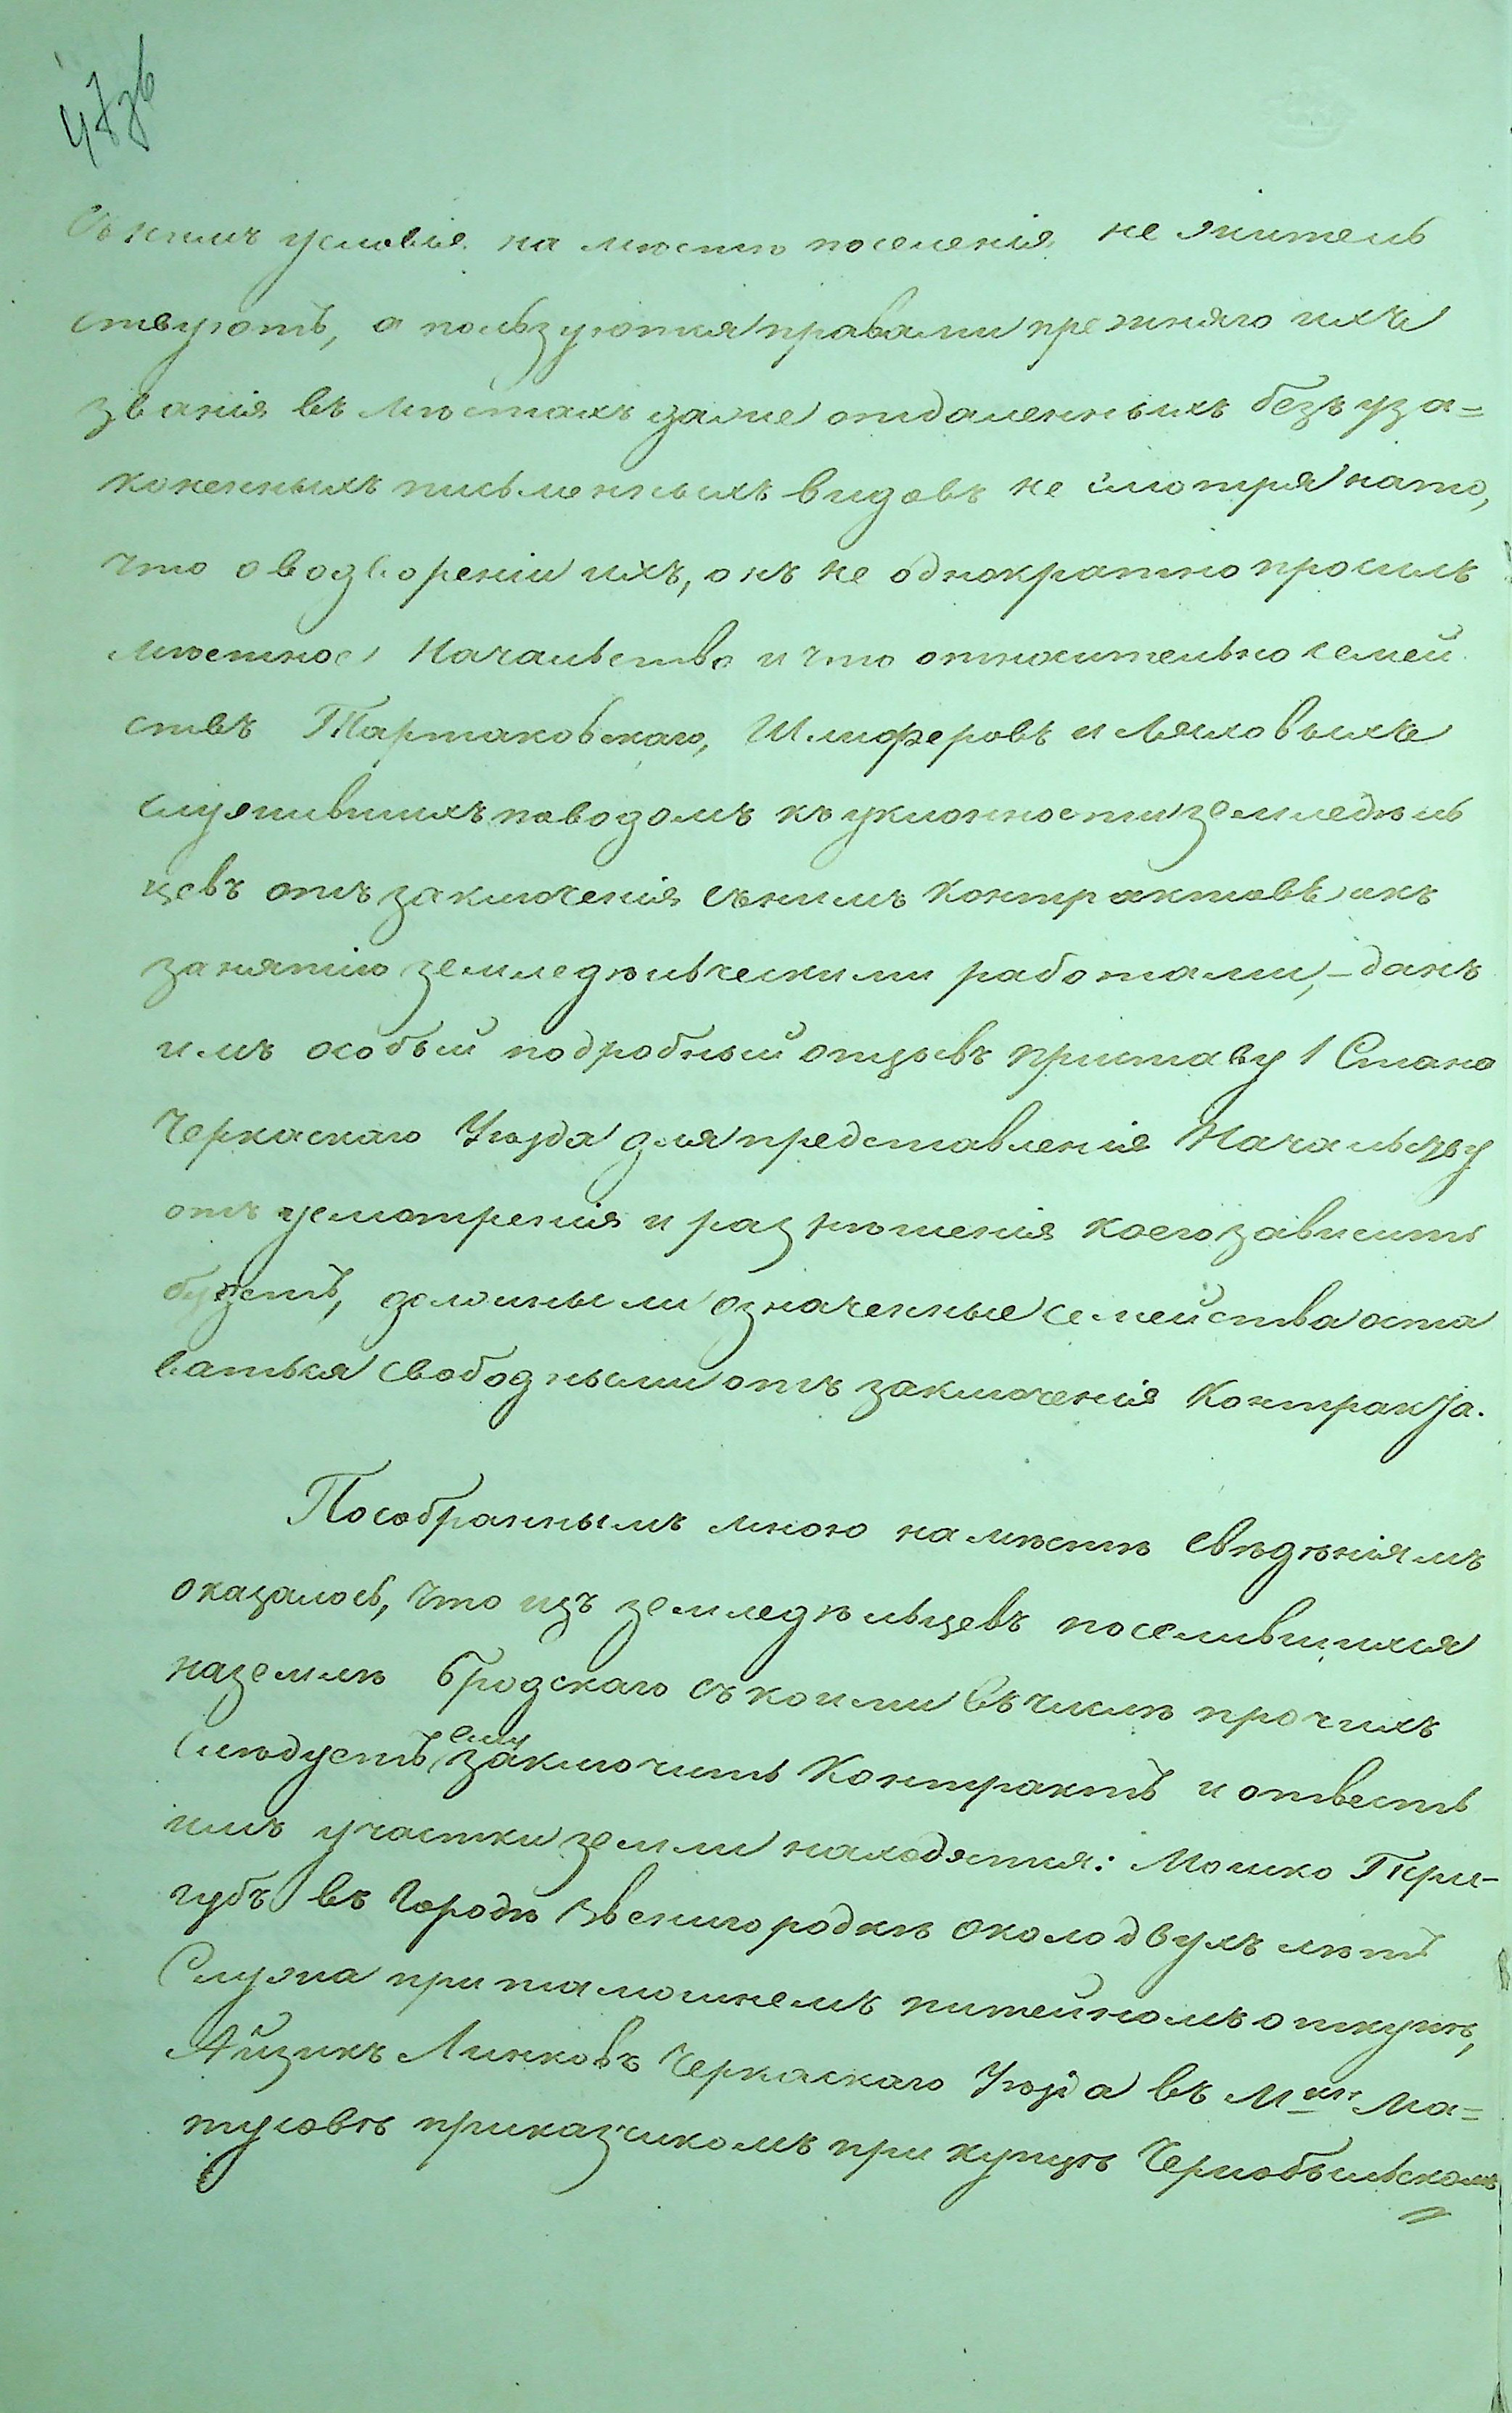 съ нимъ условія на мѣстѣ поселенія не житель
ствуютъ, а пользуются правами прежняго ихъ
званія въ мѣстахъ даже отдаленныхъ безъ уза=
коненныхъ письменныхъ видовъ не смотря на то,
что о водвореніи ихъ, онъ не однократно просилъ
мѣстное Начальство и что относительно семей
ствъ Тартаковскаго, Шлиферовъ и Ляховыхъ
служившихъ поводомъ къ уклонности земледѣль
цевъ отъ заключенія съ нимъ контрактовъ и къ
занятію земледѣльческими работами, – данъ
имъ особый подробный отзывъ приставу 1 Стана
Черкаскаго Уѣзда для представленія Начальству
отъ усмотренія и разрѣшенія коего зависить
будетъ, должны ли означенные семейства оста
ваться свободными отъ заключенія Контракта.
По собраннымъ мною на мѣстѣ свѣдѣніямъ
оказалось, что изъ земледѣльцевъ поселившихся
на землѣ Бродскаго съ коими въ числѣ прочихъ
слѣдуетъ ему заключить Контрактъ и отвесть
имъ участки земли находятся: Мошко
въ Городѣ Звенигородкѣ около двухъ лѣтъ
Служа при тамошнемъ питейномъ откупѣ,
Айзикъ Линковъ Черкаскаго Уѣзда въ Ма=
тусовѣ приказчикомъ при купцѣ Чернобыльскомъ